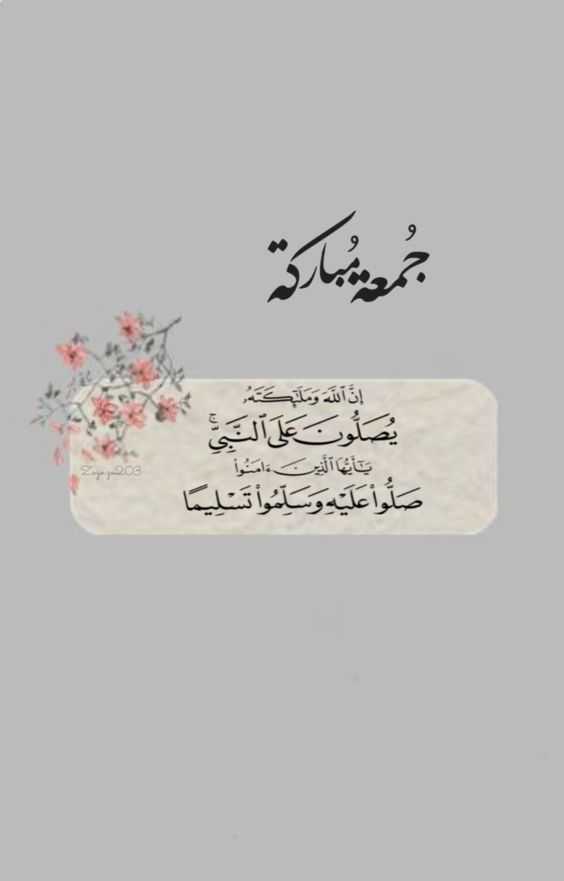 جُمعة مُباركة
إِنَّ ٱللَّهَ وَمَلَـٰٓئِكَتَهُۥ
يُصَلُّونَ عَلَى ٱلنَّبِيِّۚ
يَـٰٓأَيُّهَا ٱلَّذِينَ ءَامَنُوا۟
صَلُّوا۟ عَلَيْهِ وَسَلِّمُوا۟ تَسْلِيمًا